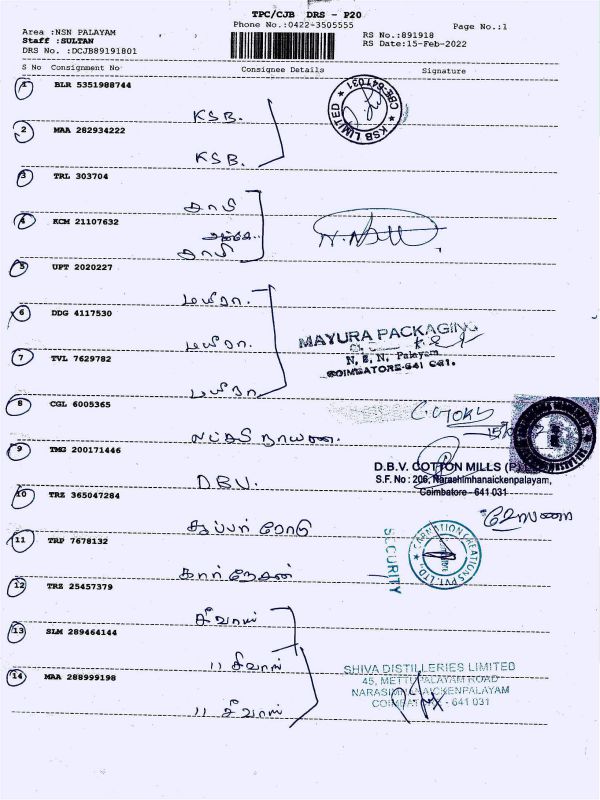 TPC/CJB DRS - P20
Area :NSN PALAYAM
Phone No.:0422-3505555
Page No.:1
Staff :SULTAN
RS No.:891918
DRS No. :DCJB89191801
RS Date:15-Feb-2022
S No Consignment No Consignee Details Signature
1 BLR 5351988744
KSB.
KSB LIMITED ★ CBE-641031 ★
2 MAA 282934222
KSB.
3 TRL 303704
சாமி
4 KCM 21107632
சாமி
5 UPT 2020227
மயூரா.
6 DDG 4117530
மயூரா.
MAYURA PACKAGING
N. S. N. Palayam,
COIMBATORE-641 031.
7 TVL 7629782
மயூரா
8 CGL 6005365
9 TMG 200171446
D.B.V.
D.B.V. COTTON MILLS (P)
S.F. No : 206, Narasimhanaickenpalayam,
Coimbatore - 641 031
10 TRZ 365047284
சூப்பர் ரோடு
11 TRP 7678132
கார்நேசன்
SECURITY
CARNATION CREATIONS PVT. LTD.
12 TRZ 25457379
சிவாஸ்
13 SLM 289464144
11 சிவாஸ்
14 MAA 288999198
11 சிவாஸ்
SHIVA DISTILLERIES LIMITED
45, METTUPALAYAM ROAD
NARASIMHANAICKENPALAYAM
COIMBATORE - 641 031